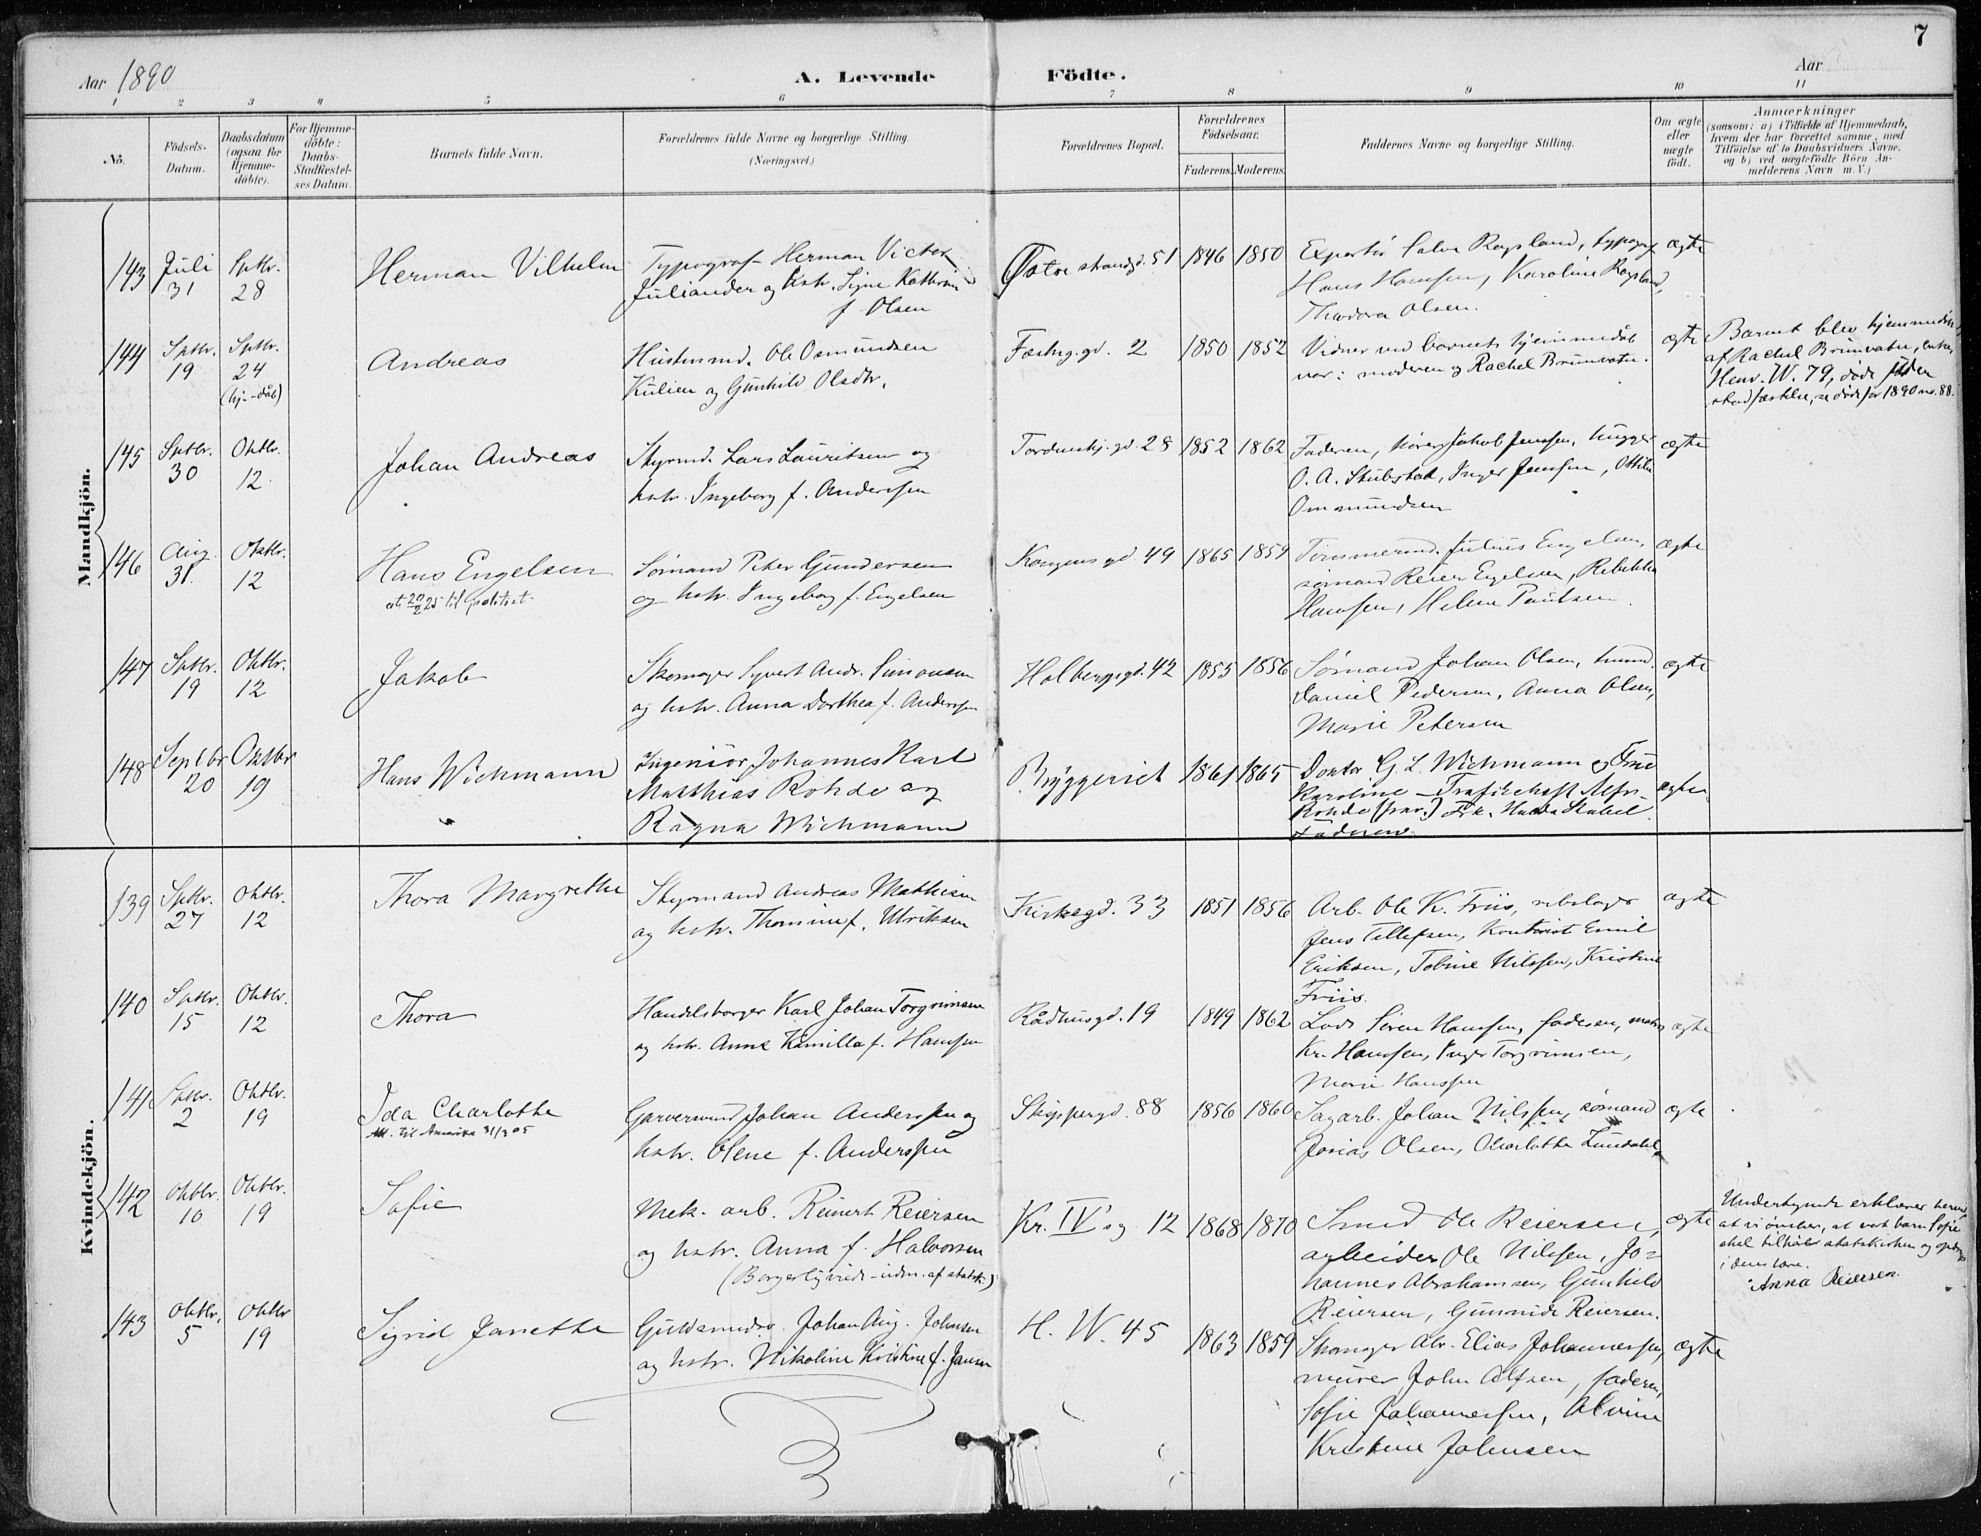 7
Aar 1890
A. Levende Födte.
Aar
1 2 3 4 5 6 7 8 9 10 11
No.
Födsels-Datum.
Daabsdatum (ogsaa for Hjemmedöbte).
For Hjemmedöbte: Daabs-Stadfæstelses Datum.
Barnets fulde Navn.
Forældrenes fulde Navne og borgerlige Stilling.
(Næringsvei.)
Forældrenes Bopæl.
Forældrenes Födselsaar.
Faderens. Moderens.
Faddernes Navne og borgerlige Stilling.
Om ægte eller uægte födt.
Anmærkninger
(saasom: a) i Tilfælde af Hjemmedaab,
hvem der har forrettet samme, med
Tilföielse af to Daabsvidners Navne,
og b) ved uægtefödte Börn An-
melderens Navn m. V.)
Mandkjön.
143 Juli 31 Sptbr. 28 Herman Vilhelm
Typograf Herman Victor
Juliander og hstr. Signe Kathrine
f. Olsen
Østre strandgd. 51 1846 1850
Salve Rogsland, typogr.
Hans Hansen, Karoline Rogsland,
Theodora Olsen.
ægte
144 Sptbr. 19 Sptbr. 24 (hj.-dåb) Andreas
Ole Osmundsen
Kulien og Gunhild Olsdtr.
Fæstng.gd. 2 1850 1852
Vidner ved barnets hjemmedåb
var: moderen og Rachel Brunvatn.
ægte
Barnet blev hjemmedøbt
af Rachel Brunvatn, enke,
Henr. W. 79, døde før den
stadfæstelse, se døde for 1890 no. 88.
145 Sptbr. 30 Oktbr. 12. Johan Andreas
Styrmd. Lars Lauritsen og
hstr. Ingeborg f. Anderssen
Tordenskj. gd. 28 1852 1862
Faderen, Jakob Jenssen, hugger
O. A. Stubstad, Inger Jenssen, Ottilie
Ommundsen
ægte
146 Aug. 31. Oktbr. 12 Hans Engelsen
Sømand Peter Gundersen
og hstr. Ingeborg f. Engelsen
Kongensgd 49 1865 1859
Tømmermd. Julius Engelsen,
sømand Reier Engelsen, Rebekka
Hanssen, Helene Paulsen.
ægte
147 Sptbr. 19 Oktbr. 12 Jakob
Skomager Syvert Andr. Simonsen
og hstr. Anna Dorthea f. Anderssen
Holbergsgd. 42 1855 1856
Sømand Johan Olsen, tømmd.
Daniel Pedersen, Anna Olsen,
Marie Petersen
ægte
148 Septbr 20 Oktbr 19 Hans Wichmann
Ingeniør Johannes Karl
Matthias Rohde og
Ragna Wichmann
Bryggeriet 1861 1865
Doktor G. L. Wichmann og Frue
Karoline – Trafikchef Alfr.
Rohde (frav.) Frk. Hulda Stabel
Faderen
ægte
Kvindekjön.
139 Sptbr. 27 Oktbr. 12 Thora Margrethe
Styrmand Andreas Mathisen
og hstr. Thomine f. Ulriksen
Kirkegd. 33 1851 1856
Arb. Ole K. Friis, rebslager
Jens Tellefsen, Kontorist Emil
Eriksen, Tobine Nilssen, Kristine
Friis.
ægte
140 Sptbr. 15 Oktbr. 12 Thora
Handelsborger Karl Johan Torgrimsen
og hstr. Anne Kamilla f. Hanssen
Rådhusgd. 19 1849 1862
Lods Søren Hanssen, faderen,
Kr. Hanssen, Inger Torgrimsen,
Marie Hanssen
ægte
141 Sptbr. 2 Oktbr. 19 Ida Charlotte
Att. til Amerika 31/3 05
Garversvend Johan Anderssen og
hstr. Olene f. Anderssen
Skippergd. 88 1856 1860
Sagarb. Johan Nilssen, sømand
Josias Olsen, Charlotte Lundahl
ægte
142 Oktbr. 10 Oktbr. 19 Sofie
Mek. arb. Reinert Reiersen
og hstr. Anna f. Halvorsen
(Borgerlig viede – udm. af statsk.)
Kr. IV's g. 12 1868 1870
Smed Ole Reiersen,
arbeider Ole Nilssen, Jo-
hannes Abrahamsen, Gunhild
Reiersen, Gunnilde Reiersen.
ægte
Undertegnede erklærer herved,
at vi ønsker, at vort barn Sofie
skal tilhøre statskirken og opdrages
i dens lære.
Anna Reiersen
143 Oktbr. 5 Oktbr 19 Sigrid Janette
Guldsmedsv. Johan Aug. Johnsen
og hstr. Nikoline Kristine f. Jansen
H. W. 45 1863 1859
Skomager Abr. Elias Johannessen,
murer John Alfsen, faderen,
Sofie Johannessen, Alvine
Kristine Johnsen
ægte